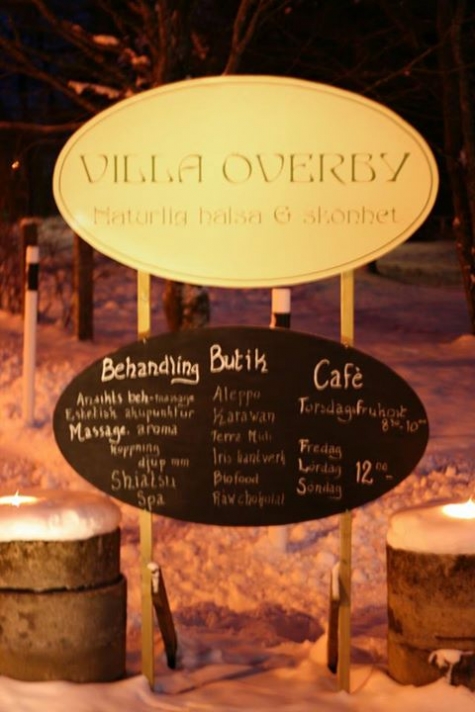 VILLA OVERBY
Naturlig hälsa & skönhet
Behandling
Ansikts beh-massage
Estetisk akupunktur
Massage. aroma
Koppning
djup mm
Shiatsu
Spa
Butik
Aleppo
Karawan
Terre
Iris hantverk
Biofood
Rawchoklad
Café
Torsdagsfrukost
8³⁰-10⁰⁰
Fredag
Lördag
Söndag
12⁰⁰-